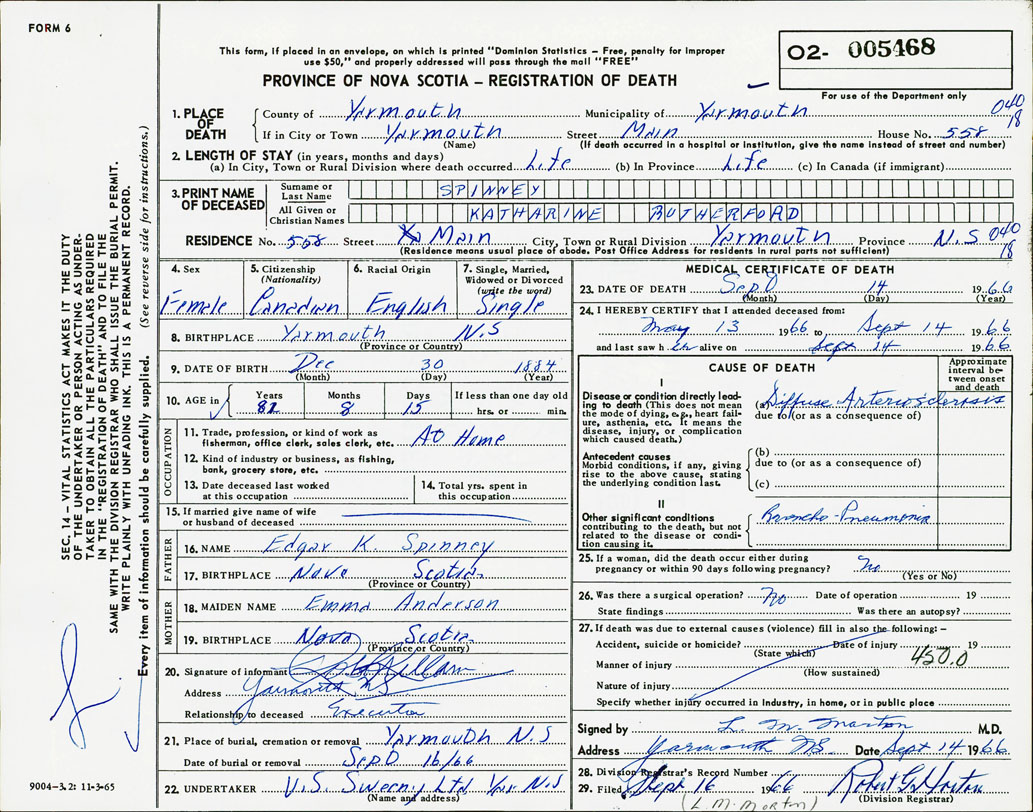 FORM 6
This form, if placed in an envelope, on which is printed "Dominion Statistics – Free, penalty for improper
use $50," and properly addressed will pass through the mail "FREE"
PROVINCE OF NOVA SCOTIA – REGISTRATION OF DEATH
O2- 005468
For use of the Department only
040
18
1. PLACE OF DEATH
County of Yarmouth Municipality of Yarmouth
If in City or Town Yarmouth Street Main House No. 558
(Name) (If death occurred in a hospital or institution, give the name instead of street and number)
2. LENGTH OF STAY (in years, months and days)
(a) In City, Town or Rural Division where death occurred Life (b) In Province Life (c) In Canada (if immigrant)
3. PRINT NAME OF DECEASED
Surname or Last Name SPINNEY
All Given or Christian Names KATHARINE RUTHERFORD
RESIDENCE No. 558 Street Main City, Town or Rural Division Yarmouth Province N.S 040
18
(Residence means usual place of abode. Post Office Address for residents in rural parts not sufficient)
4. Sex
Female
5. Citizenship
(Nationality)
Canadian
6. Racial Origin
English
7. Single, Married,
Widowed or Divorced
(write the word)
Single
8. BIRTHPLACE Yarmouth N.S
(Province or Country)
9. DATE OF BIRTH Dec 30 1884
(Month) (Day) (Year)
10. AGE in
Years Months Days If less than one day old
81 8 15 hrs. or min.
OCCUPATION
11. Trade, profession, or kind of work as
fisherman, office clerk, sales clerk, etc. At Home
12. Kind of industry or business, as fishing,
bank, grocery store, etc.
13. Date deceased last worked
at this occupation
14. Total yrs. spent in
this occupation
15. If married give name of wife
or husband of deceased
FATHER
16. NAME Edgar K. Spinney
17. BIRTHPLACE Nova Scotia
(Province or Country)
MOTHER
18. MAIDEN NAME Emma Anderson
19. BIRTHPLACE Nova Scotia
(Province or Country)
20. Signature of informant Killam
Address Yarmouth NS
Relationship to deceased Executor
21. Place of burial, cremation or removal Yarmouth N.S
Date of burial or removal Sept 16/66
22. UNDERTAKER V.S. Sweeny Ltd Yar N.S
(Name and address)
MEDICAL CERTIFICATE OF DEATH
23. DATE OF DEATH Sept 14 1966
(Month) (Day) (Year)
24. I HEREBY CERTIFY that I attended deceased from:
May 13 1966 to Sept 14 1966
and last saw her alive on Sept 14 1966
CAUSE OF DEATH
Approximate
interval be-
tween onset
and death
I
Disease or condition directly lead-
ing to death (This does not mean
the mode of dying, e.g., heart fail-
ure, asthenia, etc. It means the
disease, injury, or complication
which caused death.)
(a) Diffuse Arteriosclerosis
due to (or as a consequence of)
Antecedent causes
Morbid conditions, if any, giving
rise to the above cause, stating
the underlying condition last.
(b)
due to (or as a consequence of)
(c)
II
Other significant conditions
contributing to the death, but not
related to the disease or condi-
tion causing it.
Broncho-Pneumonia
25. If a woman, did the death occur either during
pregnancy or within 90 days following pregnancy? No
(Yes or No)
26. Was there a surgical operation? No Date of operation 19
State findings Was there an autopsy?
27. If death was due to external causes (violence) fill in also the following: –
Accident, suicide or homicide? Date of injury 19
(State which)
Manner of injury 450.0
(How sustained)
Nature of injury
Specify whether injury occurred in Industry, in home, or in public place
Signed by L. M. Morton M.D.
Address Yarmouth NS. Date Sept 14 1966
28. Division Registrar's Record Number
29. Filed Sept 16 1966 Robert G Horton
(L.M. Morton) (Division Registrar)
SEC. 14 – VITAL STATISTICS ACT MAKES IT THE DUTY
OF THE UNDERTAKER OR PERSON ACTING AS UNDER-
TAKER TO OBTAIN ALL THE PARTICULARS REQUIRED
IN THE "REGISTRATION OF DEATH" AND TO FILE THE
SAME WITH THE DIVISION REGISTRAR WHO SHALL ISSUE THE BURIAL PERMIT.
WRITE PLAINLY WITH UNFADING INK. THIS IS A PERMANENT RECORD.
Every item of information should be carefully supplied. (See reverse side for instructions.)
9004-3.2: 11-3-65